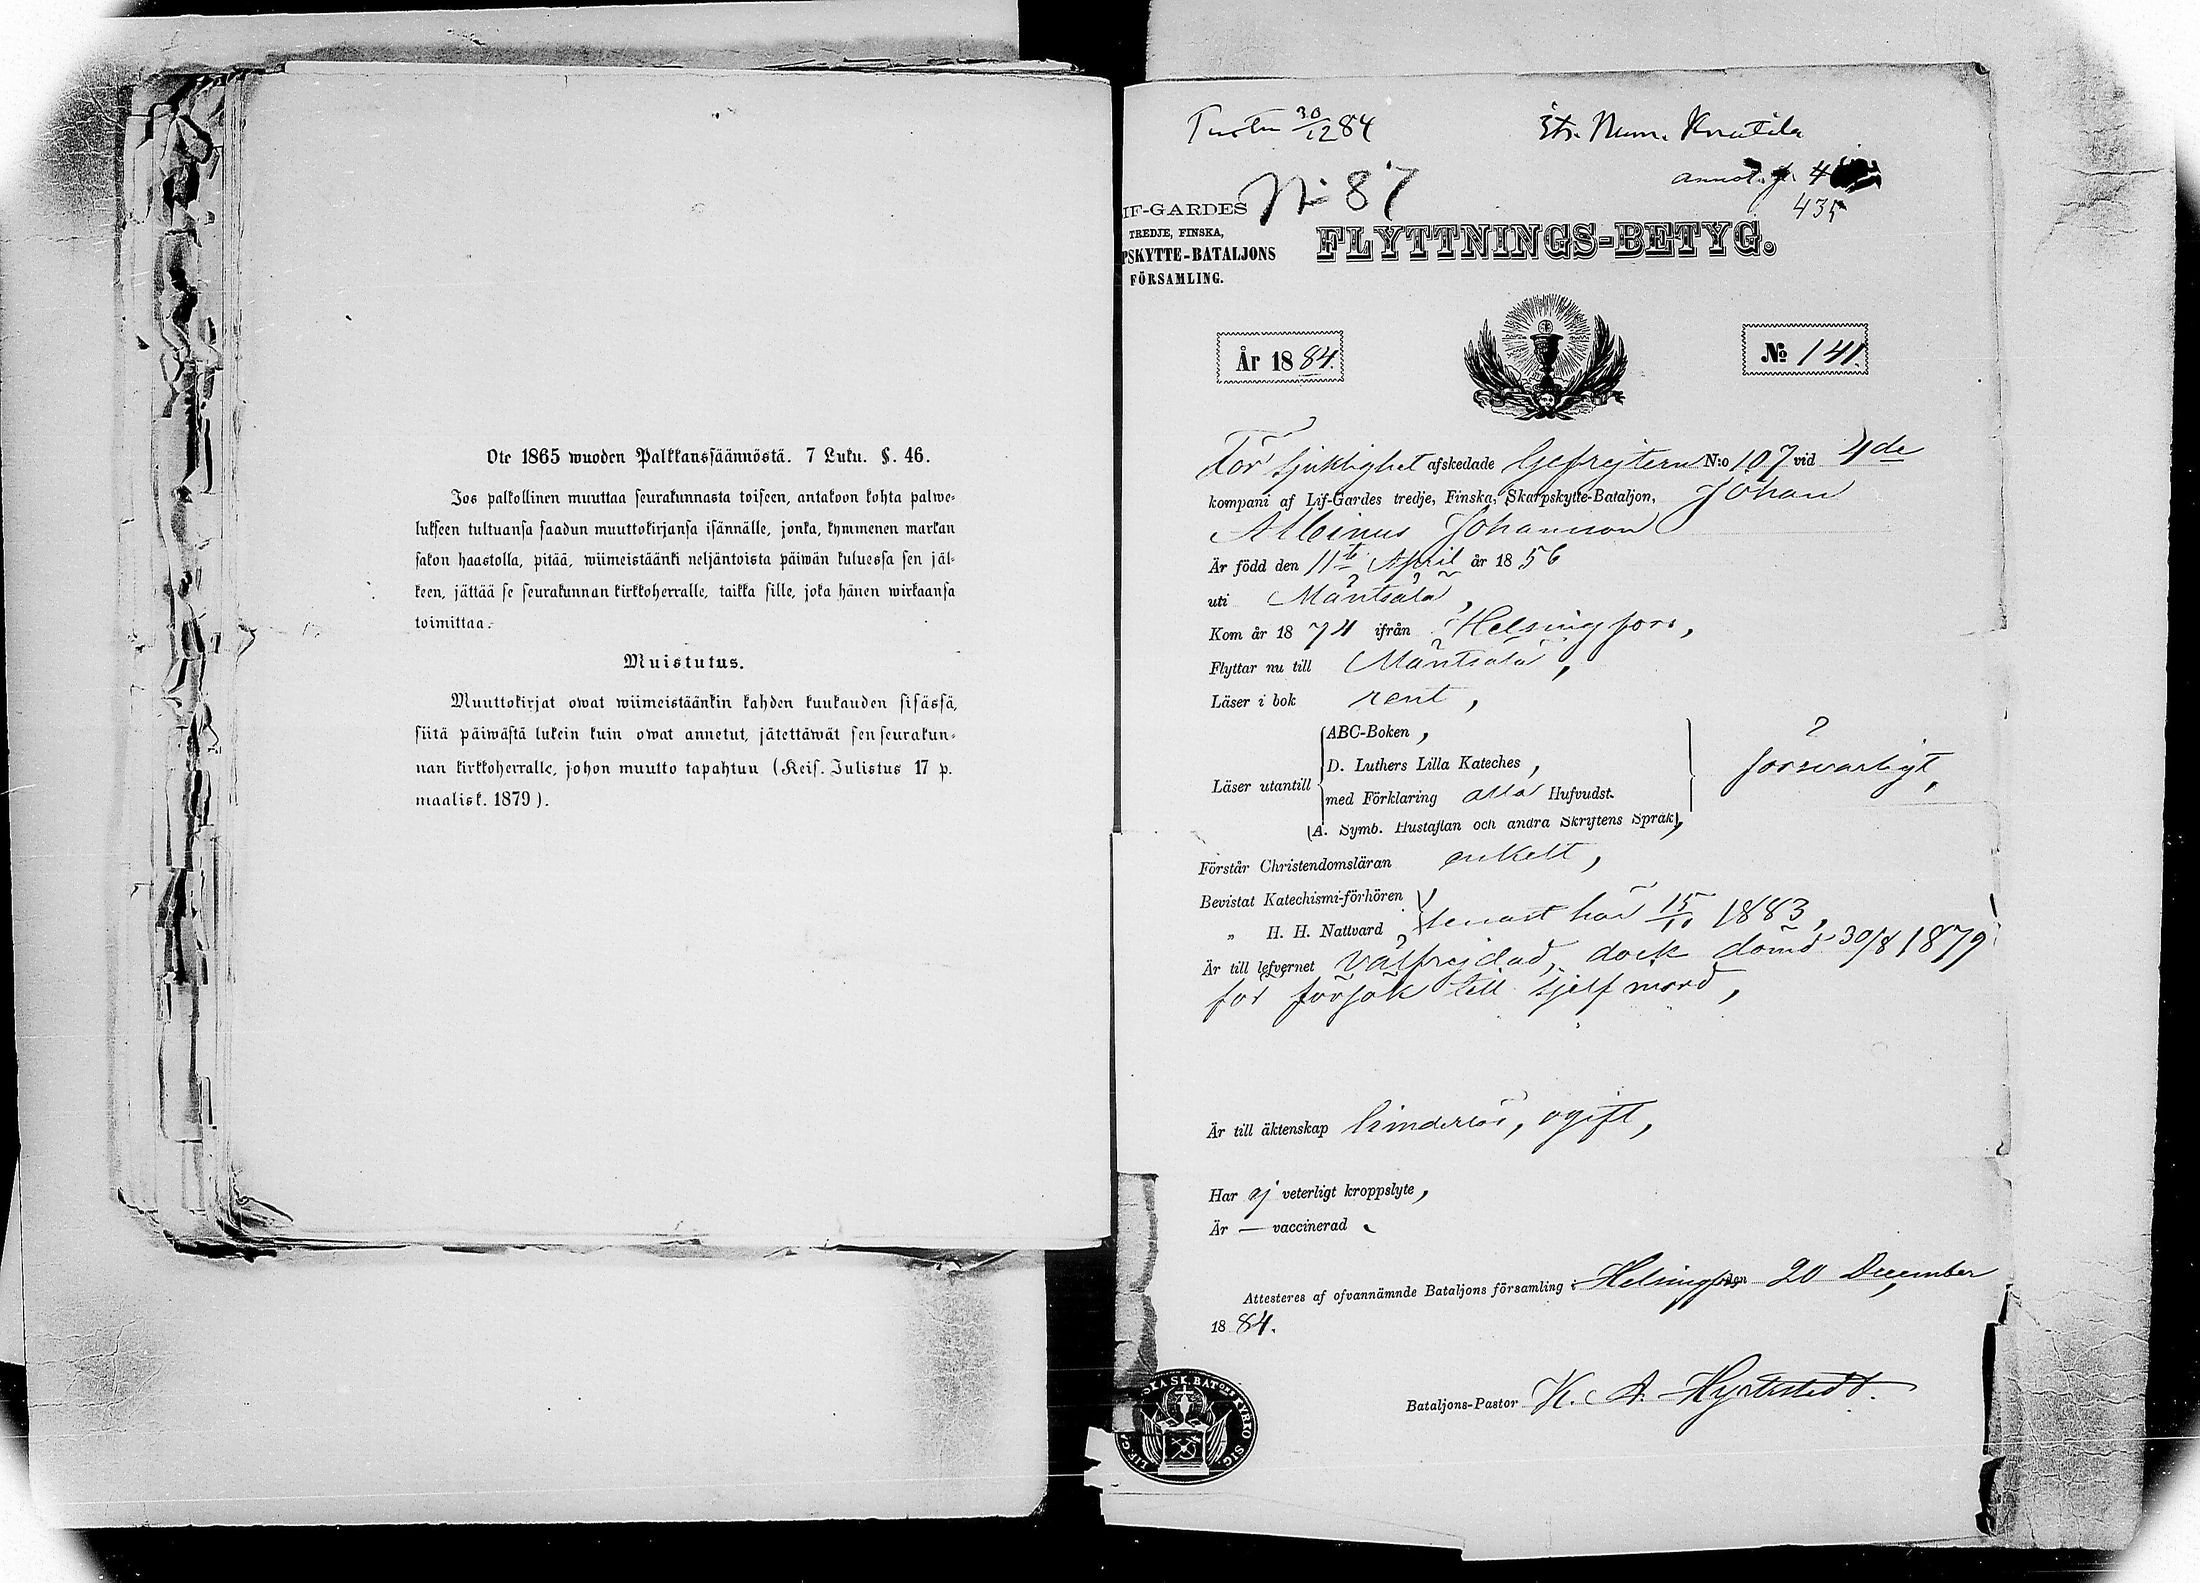 Ote 1865 wuoden Palkkanssäännöstä. 7 Luku. §. 46.
Jos palkollinen muuttaa seurakunnasta toiseen, antakoon kohta palwe-
lukseen tultuansa saadun muuttokirjansa isännälle, jonka, kymmenen markan
sakon haastolla, pitää, wiimeistäänki neljäntoista päiwän kuluessa sen jäl-
keen, jättää se seurakunnan kirkkoherralle, taikka sille, joka hänen wirkaansa
toimittaa.
Muistutus.
Muuttokirjat owat wiimeistäänkin kahden kuukauden sisässä,
siitä päiwästä lukein kuin owat annetut, jätettäwät sen seurakun-
nan kirkkoherralle, johon muutto tapahtuu (Keis. Julistus 17 p.
maalisk. 1879).
30/12 84
Num. Knutila
N: 87
annot. p. 4
435
IF-GARDES
TREDJE, FINSKA,
PSKYTTE-BATALJONS
FÖRSAMLING.
FLYTTNINGS-BETYG.
År 1884.
No 141.
För sjuklighet afskedade Gefrejtern N:o 107 vid 4de
kompani af Lif-Gardes tredje, Finska, Skarpskytte-Bataljon, Johan
Albinus Johansson
Är född den 11te April år 1856
uti Mäntsälä,
Kom år 1874 ifrån Helsingfors,
Flyttar nu till Mäntsälä,
Läser i bok rent,
Läser utantill
ABC-Boken,
D. Luthers Lilla Kateches,
med Förklaring alla Hufvudst.
A. Symb. Hustaflan och andra Skriftens Språk,
försvarligt,
Förstår Christendomsläran enkelt,
Bevistat Katechismi-förhören
" H. H. Nattvard
senast här 15/10 1883,
Är till lefvernet välfrejdad, dock dömd 30/8 1879
för försök till sjelfmord,
Är till äktenskap hinderlös, ogift,
Har ej veterligt kroppslyte,
Är — vaccinerad
Attesteres af ofvannämnde Bataljons församling i Helsingfors den 20 December
1884.
Bataljons-Pastor K. A. Hyrtstedt.
SKA SK. BATONS KYRKO SIG.
LIF.G.